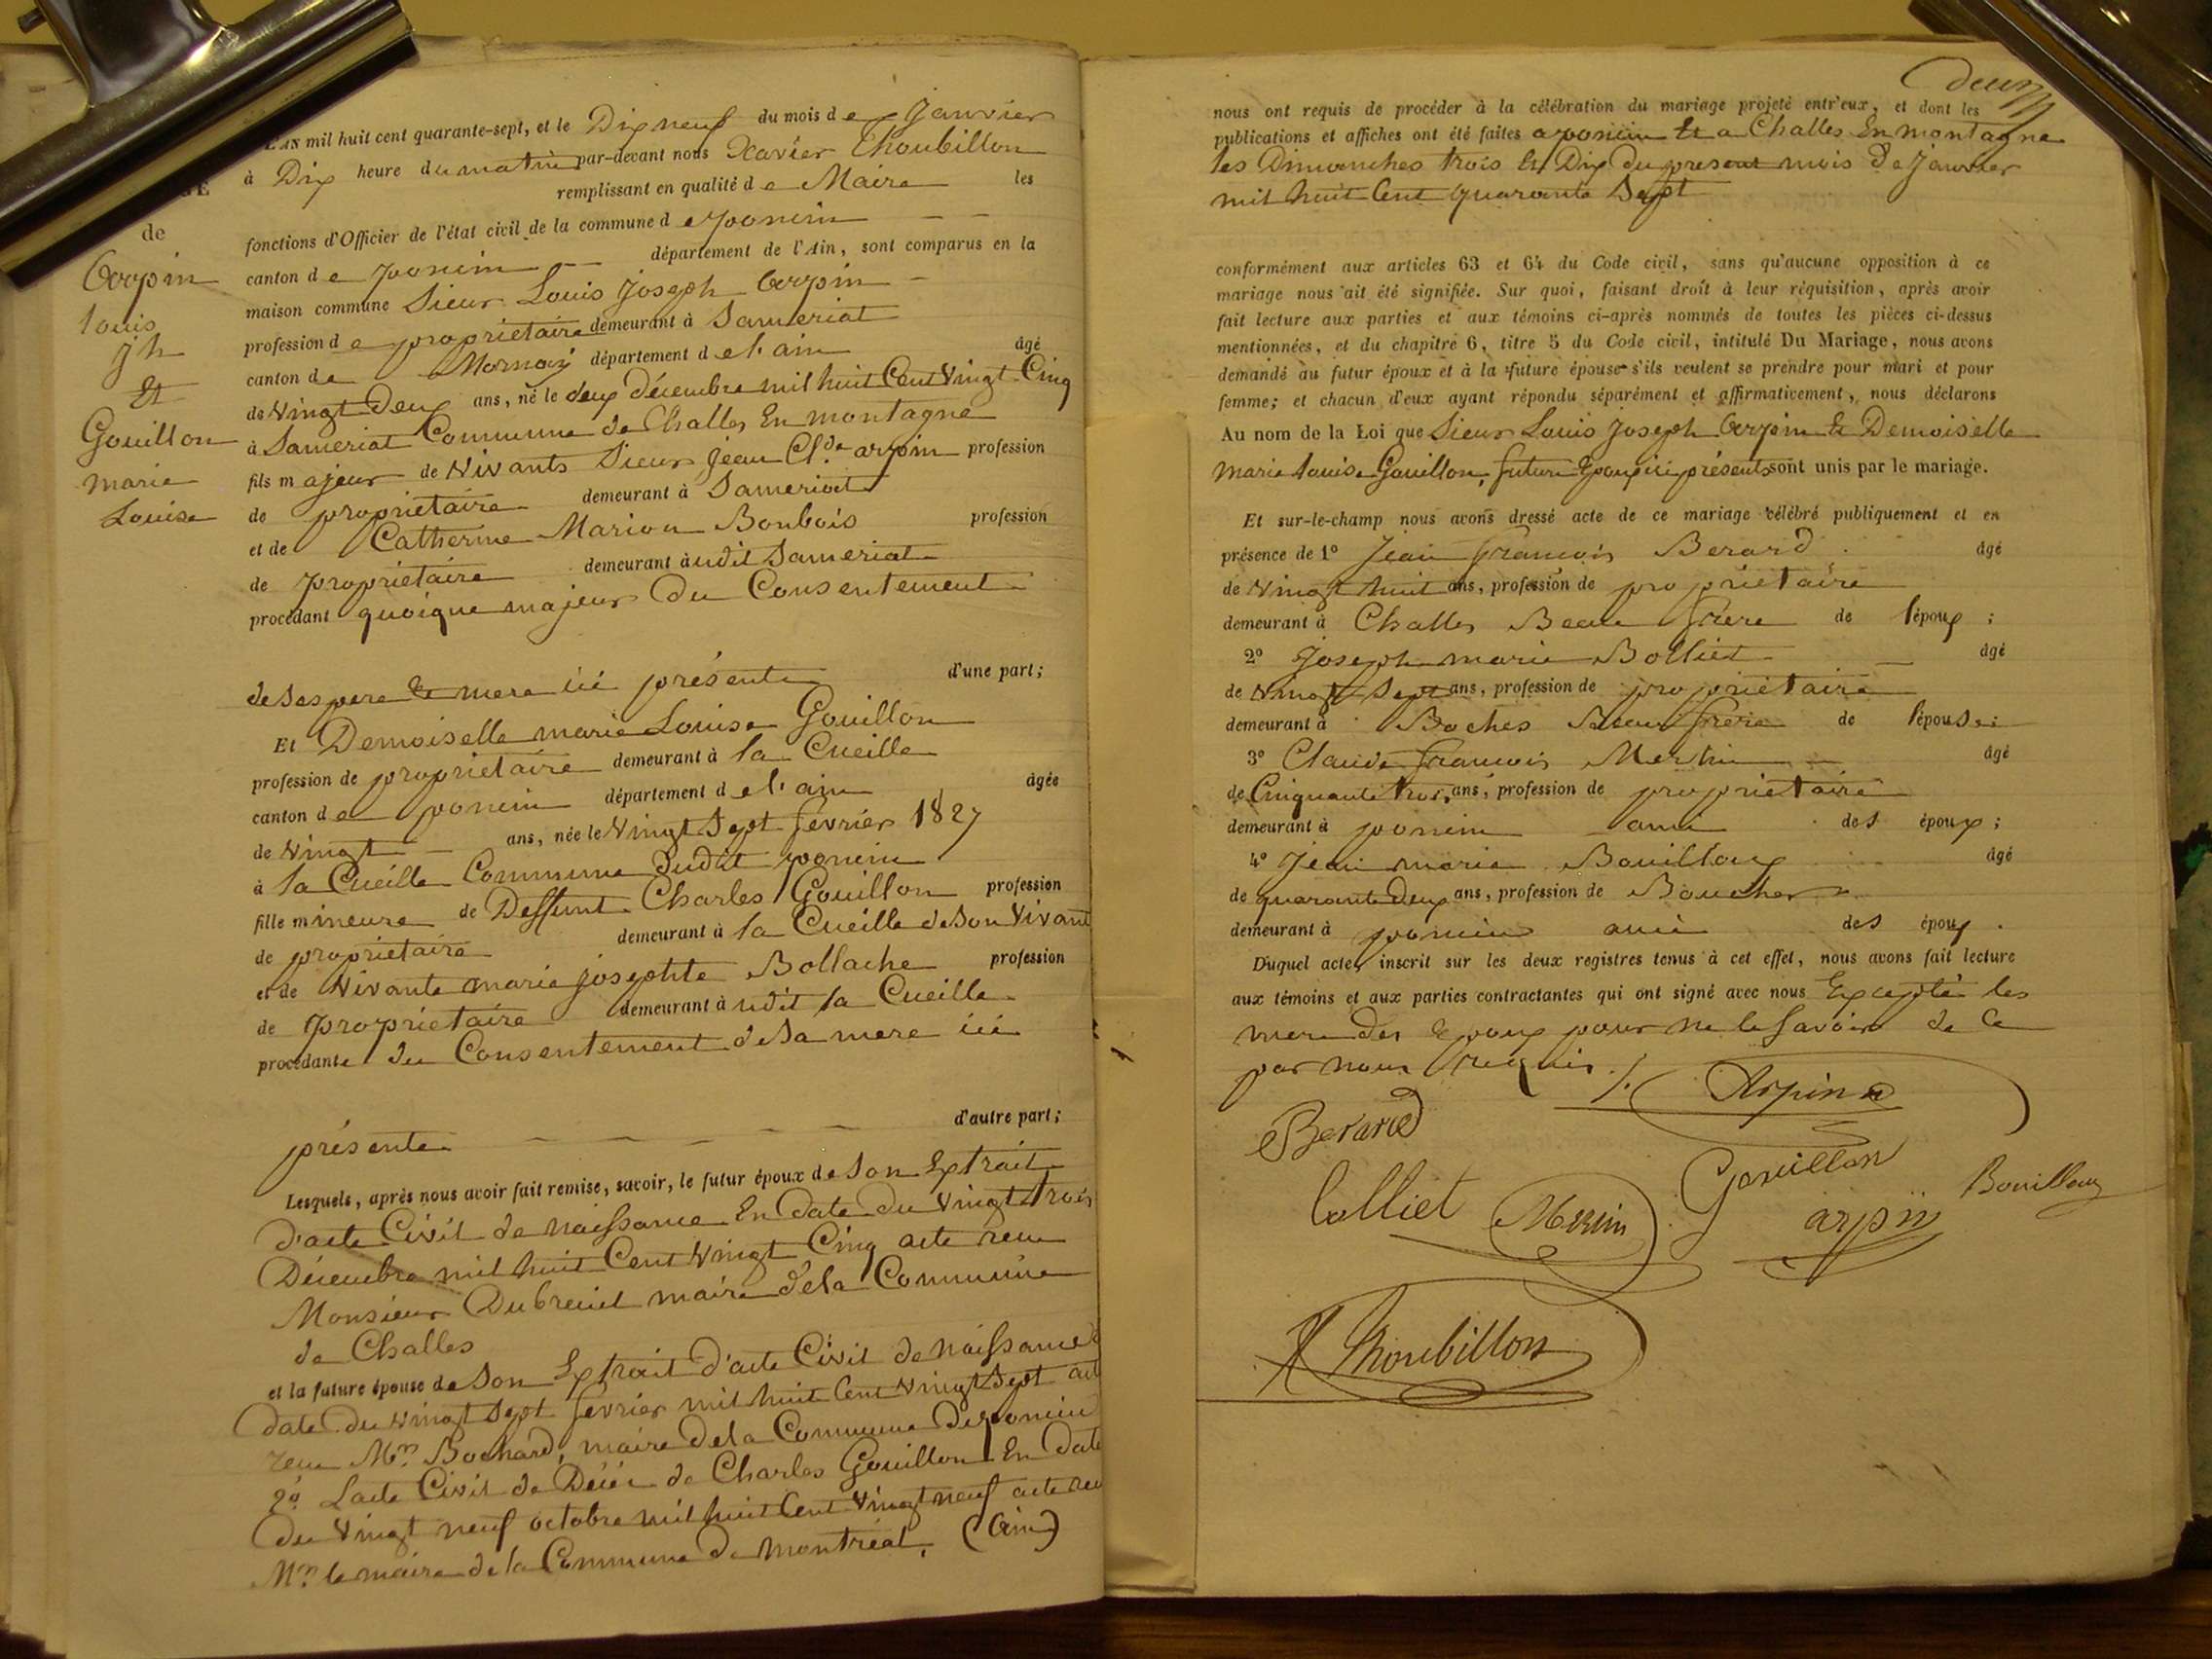 GE
de
Arpin
Louis
jh
Et
Gouillon
marie
Louise
L'AN mil huit cent quarante-sept, et le Dix neuf du mois de Janvier
à Dix heure du matin par-devant nous Xavier Thoubillon
remplissant en qualité de Maire les
fonctions d'Officier de l'état civil de la commune de poncin
canton de poncin département de l'Ain, sont comparus en la
maison commune Sieur Louis Joseph Arpin
profession de propriétaire demeurant à Sameriat
canton de Mornay département de l'ain âgé
de Vingt Deux ans, né le deux décembre mil huit Cent Vingt Cinq
à Sameriat Commune de Challes En montagne
fils majeur de Vivants Sieur Jean Clde arpin profession
de propriétaire demeurant à Sameriat
et de Catherine Marion Bonbois profession
de propriétaire demeurant àudit Sameriat
procédant quoique majeur Du Consentement
de Ses pere Et mere ici présents d'une part;
Et Demoiselle marie Louise Gouillon
profession de propriétaire demeurant à la Cueille
canton de poncin département de l'ain âgée
de Vingt ans, née le Vingt Sept fevrier 1827
à la Cueille Commune dudit poncin
fille mineure de Deffunt Charles Gouillon profession
de propriétaire demeurant à la Cueille de Son Vivant
et de Vivante marie josephte Bollache profession
de propriétaire demeurant àudit la Cueille
procédante du Consentement de Sa mere ici
présente d'autre part;
Lesquels, après nous avoir fait remise, savoir, le futur époux de Son Extrait
d'acte Civil de naissance En date du Vingt trois
Décembre mil huit Cent Vingt Cinq acte recu
Monsieur Dubreuil maire de la Commune
de Challes
et la future épouse de Son Extrait d'acte Civil de naissance
date du Vingt Sept fevrier mil huit Cent Vingt Sept act
recu Mr Bochard, maire de la Commune De poncin
2º Lacte Civil de Décés de Charles Gouillon En Date
du Vingt neuf octobre mil huit Cent Vingt neuf acte recu
Mr le maire de la Commune de montréal, (Ain)
deux
nous ont requis de procéder à la célébration du mariage projeté entr'eux, et dont les
publications et affiches ont été faites a poncin Et a Challes En montagne
les Dimanches trois Et Dix Du present mois de janvier
mil huit Cent quarante Sept
conformément aux articles 63 et 64 du Code civil, sans qu'aucune opposition à ce
mariage nous ait été signifiée. Sur quoi, faisant droit à leur réquisition, après avoir
fait lecture aux parties et aux témoins ci-après nommés de toutes les pièces ci-dessus
mentionnées, et du chapitre 6, titre 5 du Code civil, intitulé Du Mariage, nous avons
demandé au futur époux et à la future épouse s'ils veulent se prendre pour mari et pour
femme; et chacun d'eux ayant répondu séparément et affirmativement, nous déclarons
Au nom de la Loi que Sieur Louis Joseph Arpin Et Demoiselle
Marie Louise Gouillon, futurs Epoux ici présents sont unis par le mariage.
Et sur-le-champ nous avons dressé acte de ce mariage célébré publiquement et en
présence de 1º Jean françois Berard âgé
de Vingt huit ans, profession de propriétaire
demeurant à Challes Beau frère de lépoux;
2º Joseph marie Bolliet âgé
de Vingt Sept ans, profession de propriétaire
demeurant à Boches frère de lépouse;
3º Claude françois Merlin âgé
de Cinquante trois ans, profession de propriétaire
demeurant à poncin ami des époux;
4º Jean marie Bouilloux âgé
de quarante Deux ans, profession de Boucher
demeurant à poncin ami des époux.
Duquel acte, inscrit sur les deux registres tenus à cet effet, nous avons fait lecture
aux témoins et aux parties contractantes qui ont signé avec nous Excepté les
mere des Epoux pour ne le Savoir de Ce
par nous requis ./.
Arpin
Berard
Gouillon
Bouilloux
Colliet
Merlin
arpin
X Thoubillon